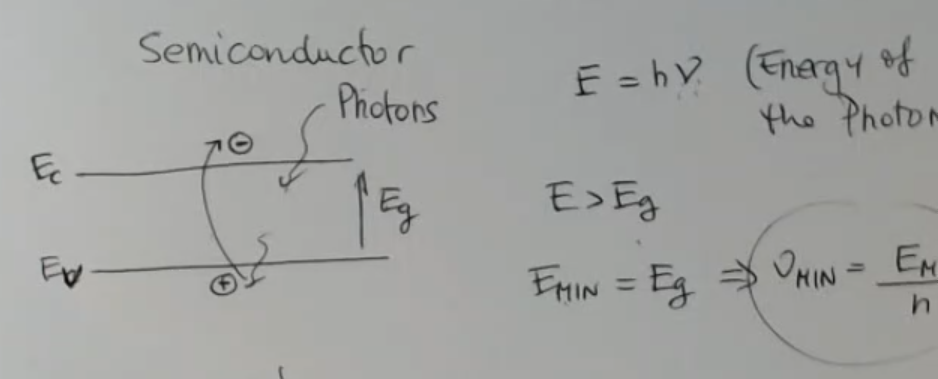 Semiconductor
Photons
⊖
Ec
Eg
Ev
⊕
E = hν (Energy of
the Photon
E > Eg
EMIN = Eg ⇒ νMIN = EM
h